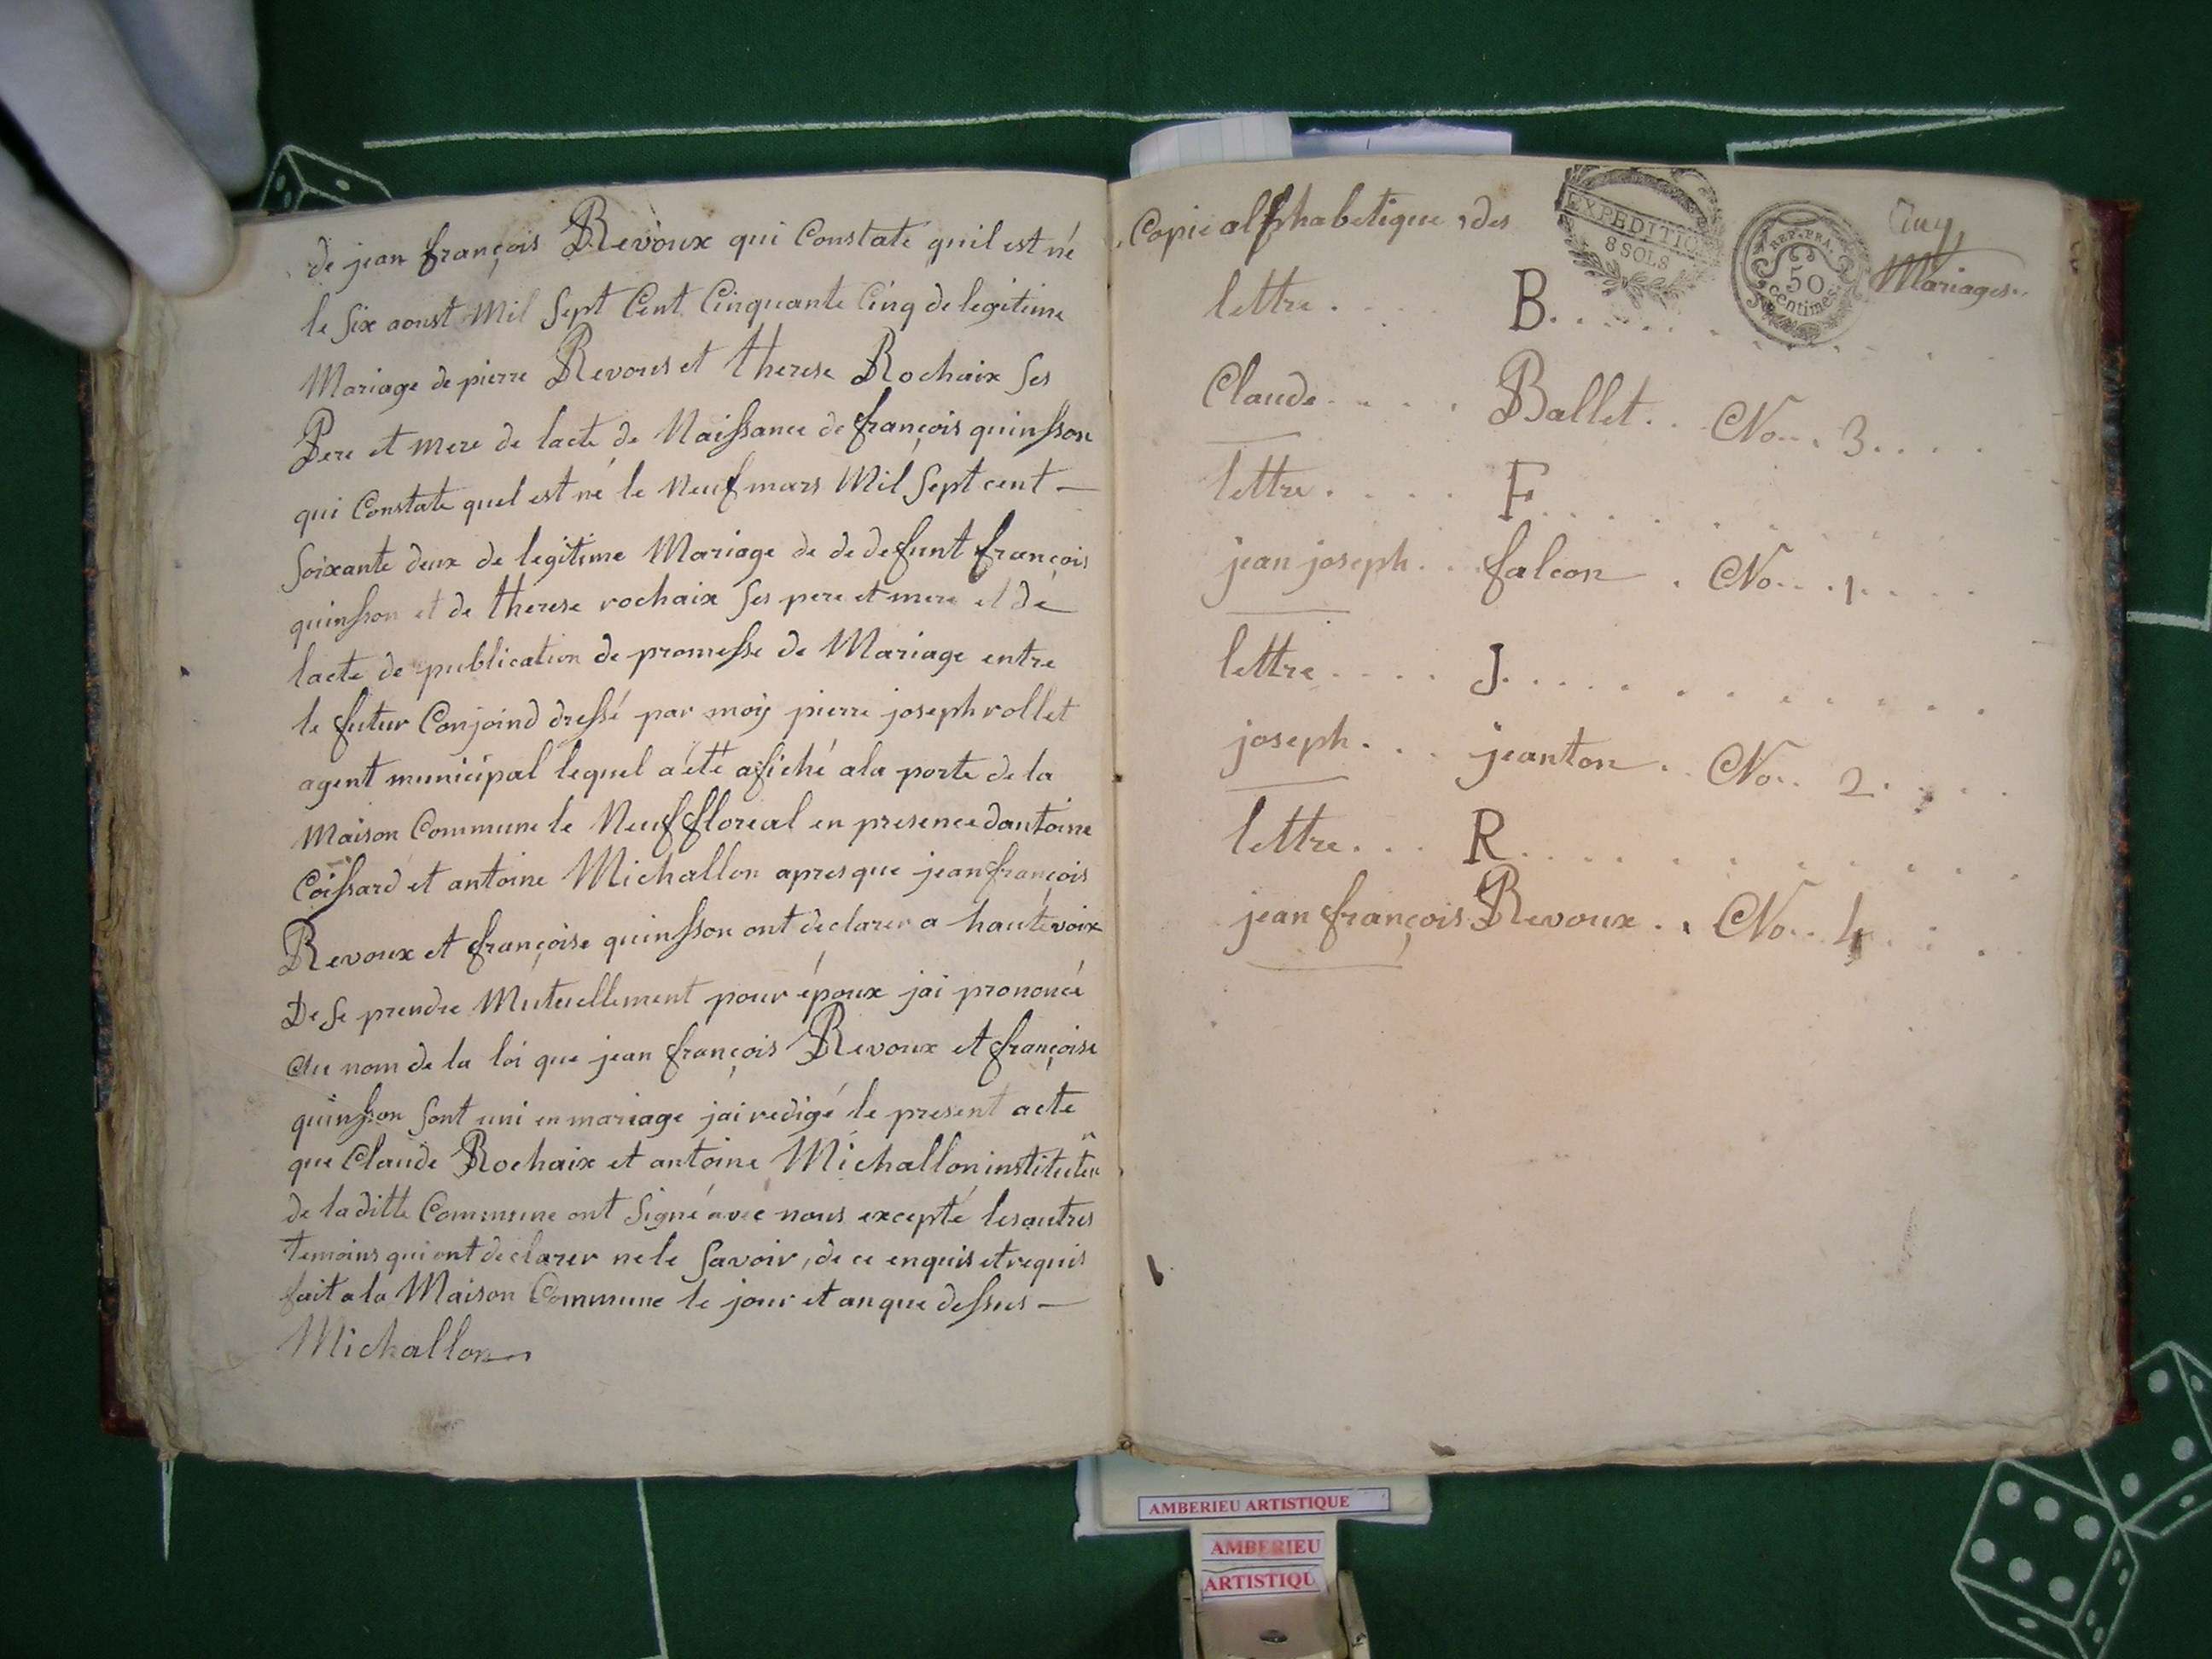 de jean françois Revoux qui Constate quil est né
le Six aoust Mil Sept Cent Cinquante Cinq de legitime
Mariage de pierre Revous et therese Rochaix Ses
Pere et mere de lacte de Naissance de françois quinsson
qui Constate quel est né le Neuf mars Mil Sept cent —
Soixante deux de legitime Mariage de de defunt françois
quinsson et de therese rochaix Ses pere et mere et de
lacte de publication de promesse de Mariage entre
le futur Conjoind dressé par moy pierre joseph rollet
agent municipal lequel a été afiché ala porte de la
Maison Commune le Neuf floreal en presence dantoine
Coissard et antoine Michallon apres que jean françois
Revoux et françoise quinsson ont declarer a haute voix
De Se prendre Mutuellement pour époux jai prononcé
Au nom de la loi que jean françois Revoux et françoise
quinsson Sont uni en mariage jai redigé le present acte
que Claude Rochaix et antoine Michallon instituteur
de la ditte Commune ont Signé avec nous excepté les autres
temoins qui ont declarer ne le Savoir, de ce enquis et requis
fait a la Maison Commune le jour et an que dessus —
Michallon
Copie alphabetique des Mariages
EXPEDITION
8 SOLS
REP. FRA.
50
centimes
lettre .... B. ......
Claude .... Ballet .. No... 3....
lettre .... F. ......
jean joseph .. falcon . No... 1....
lettre .... J. ......
joseph ... jeanton .. No.. 2....
lettre ... R. ......
jean françois Revoux .. No.. 4...
AMBERIEU ARTISTIQUE
AMBERIEU
ARTISTIQU